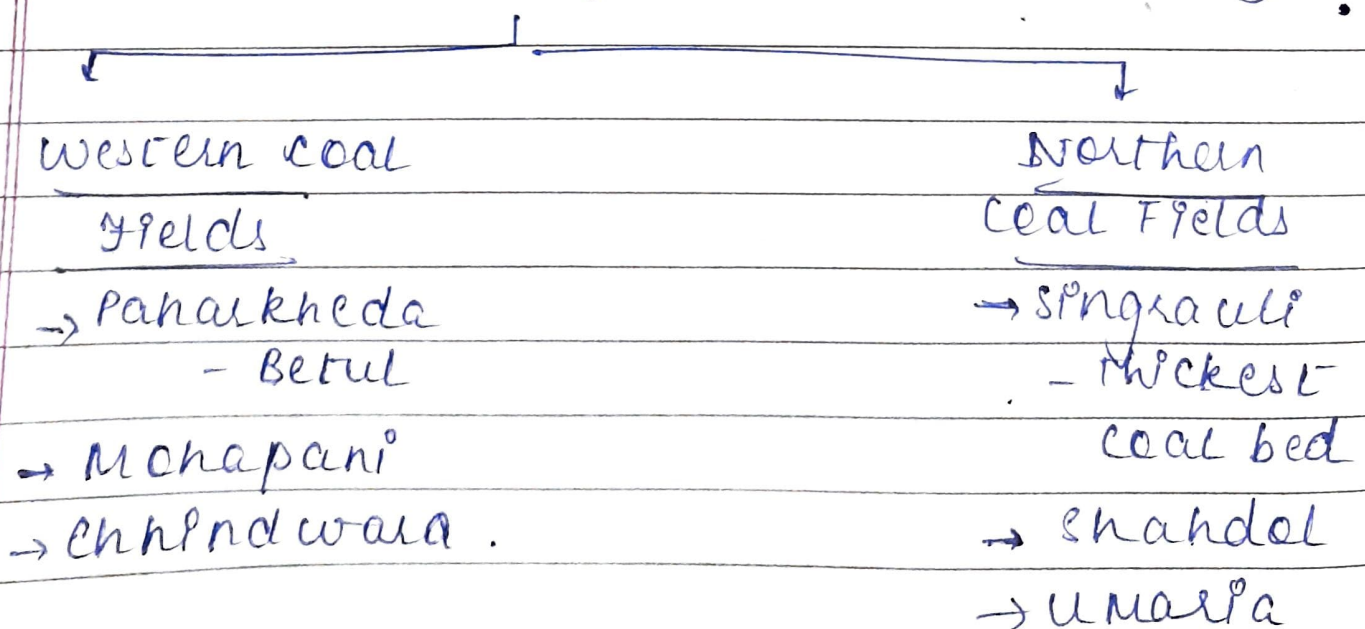 Western Coal
Fields
→ Paharkheda
- Betul
→ Mohapani
→ Chhindwara.
Northern
Coal Fields
→ Singrauli
- Thickest
coal bed
→ Shahdol
→ Umaria